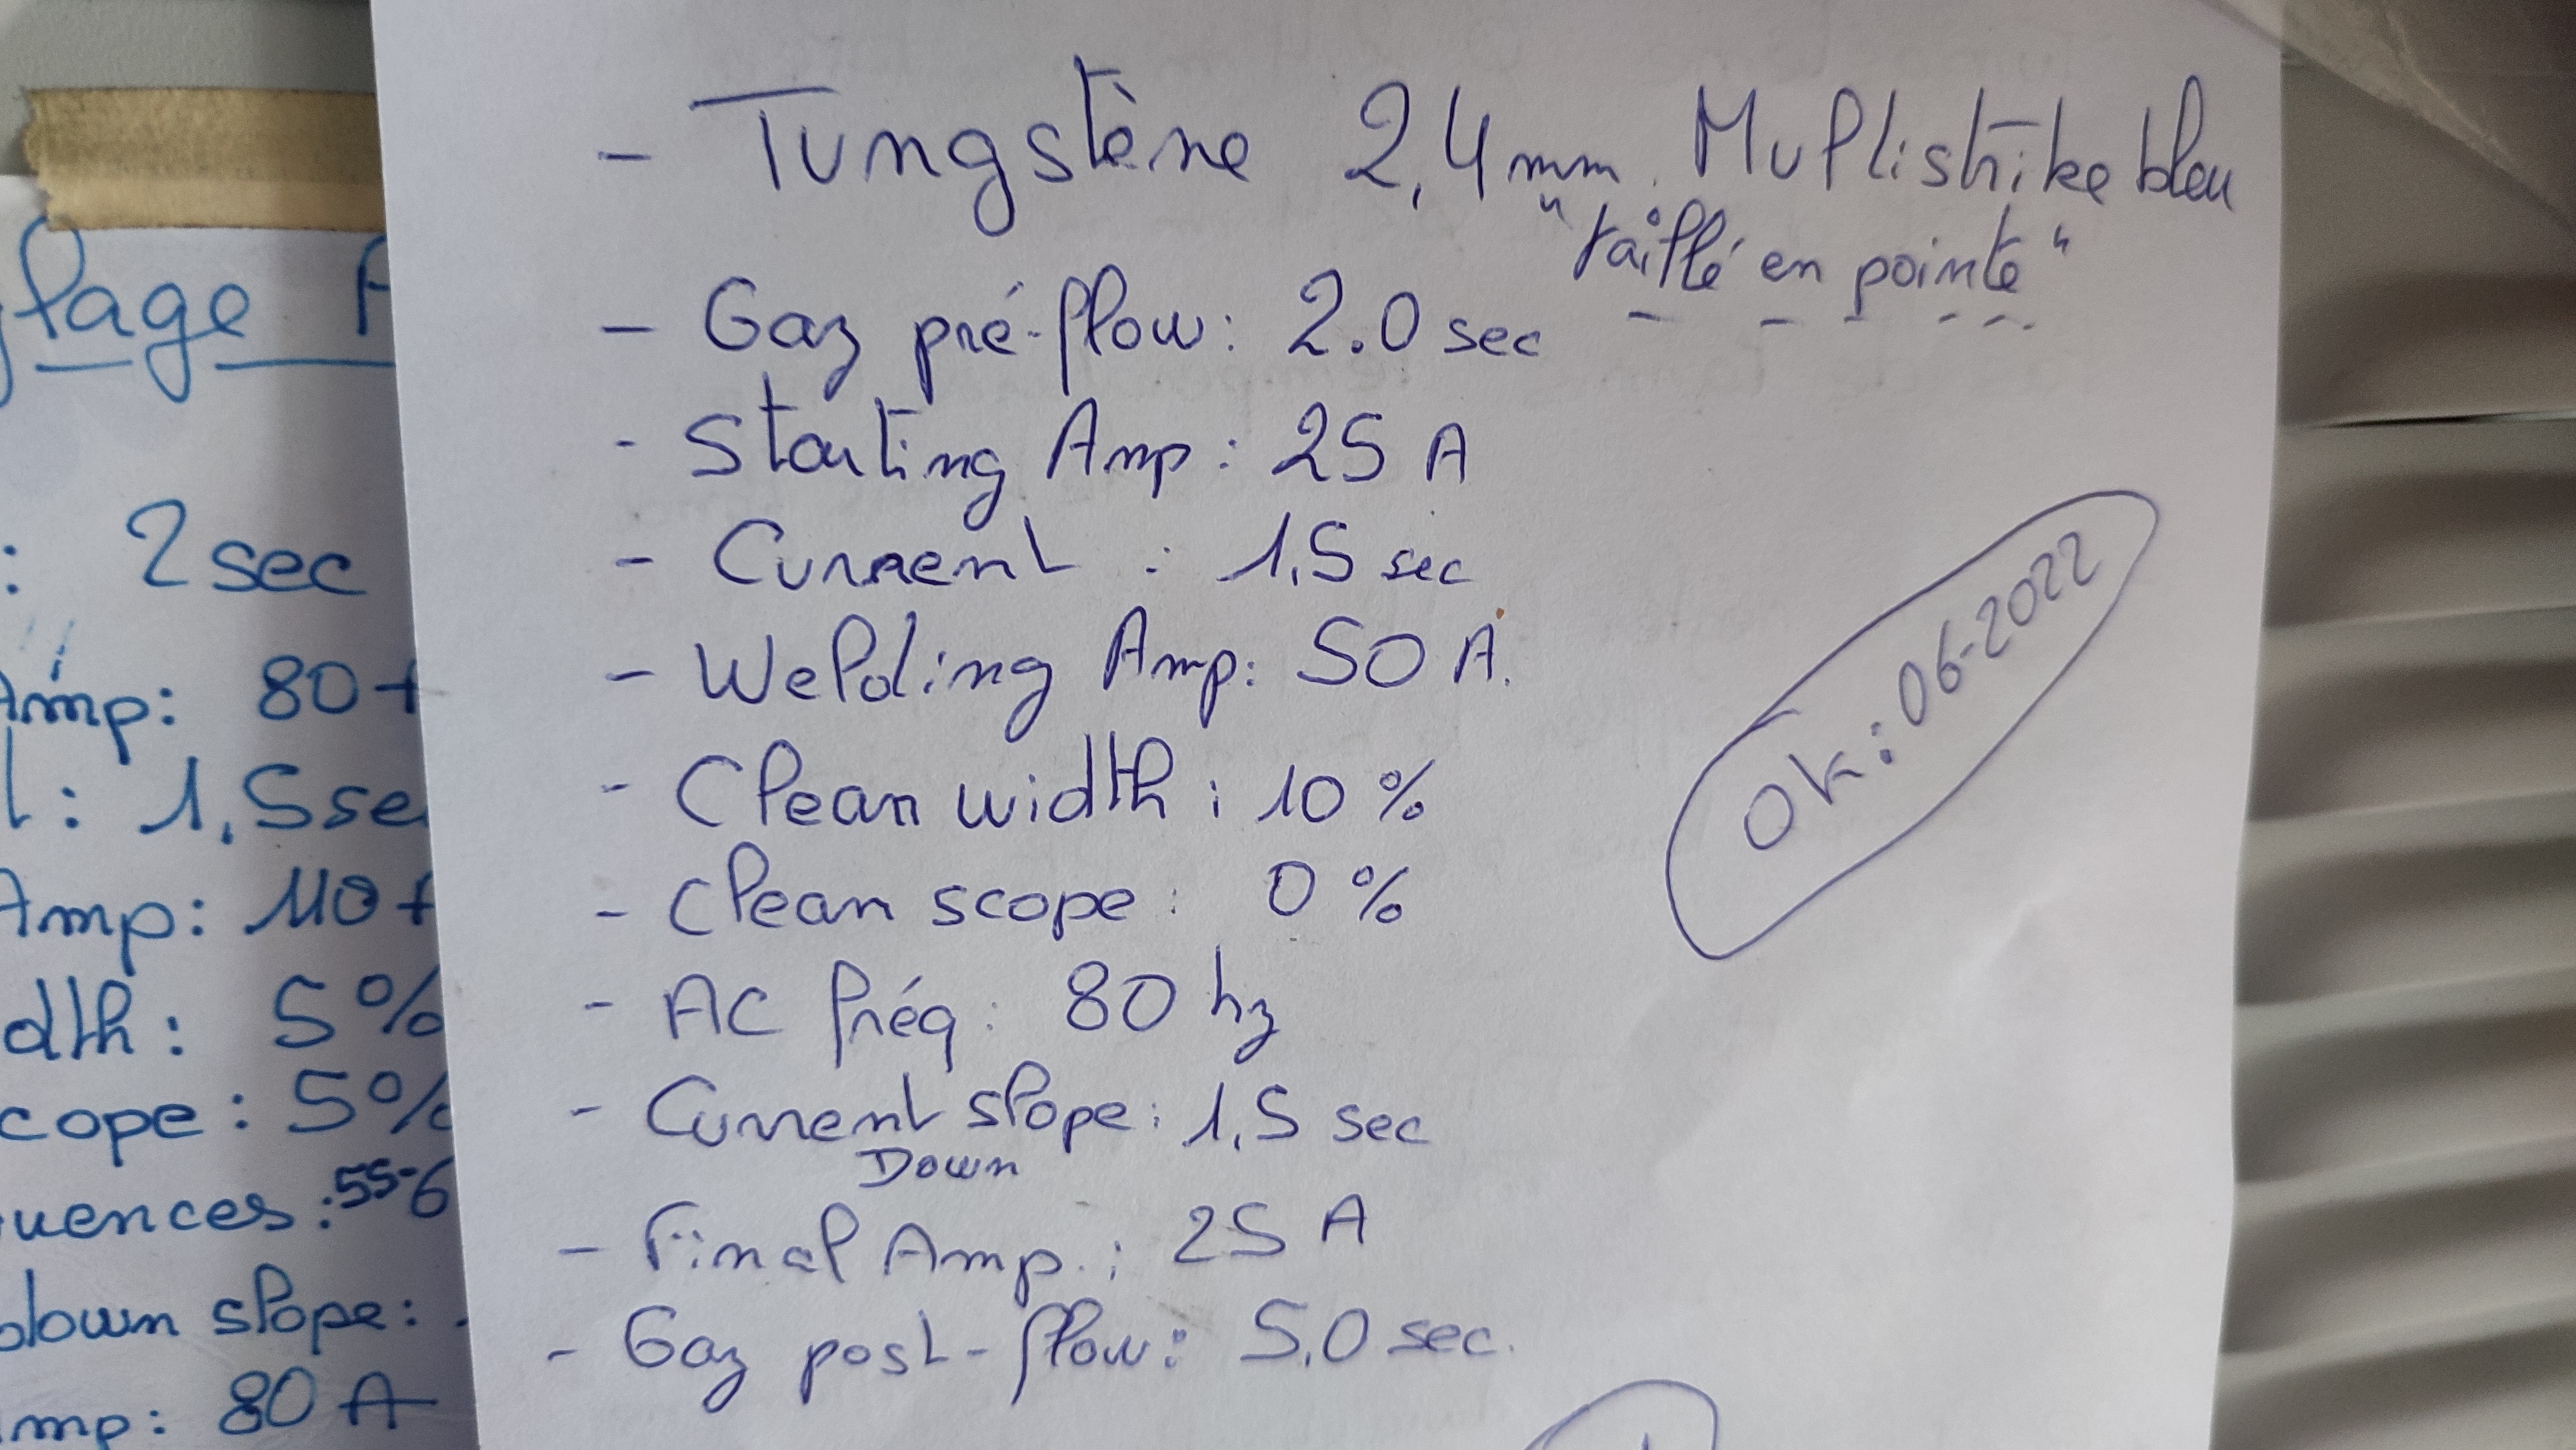 - Tungstène 2,4mm. Multistrike bleu
"taillé en pointe"
- Gaz pré-flow: 2.0 sec
- Starting Amp: 25 A
- Current : 1,5 sec
- Welding Amp: 50 A.
- Clean width: 10 %
- Clean scope: 0 %
- AC fréq: 80 hz
- Current slope: 1,5 sec
Down
- Final Amp.: 25 A
- Gaz post-flow: 5,0 sec.
Ok: 06-2022
: 2 sec
Amp: 80
: 1,5 se
Amp: 110
dth: 5%
cope: 5%
uences: 55-6
down slope:
mp: 80 A